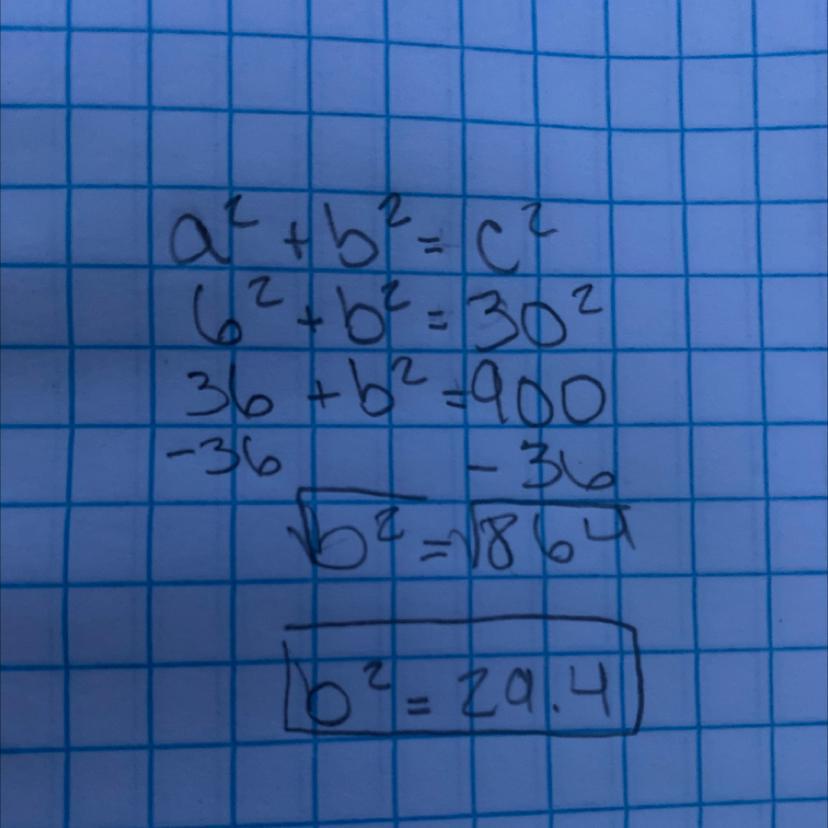 a² + b² = c²
6² + b² = 30²
36 + b² = 900
-36 - 36
√b² = √864
b² = 29.4